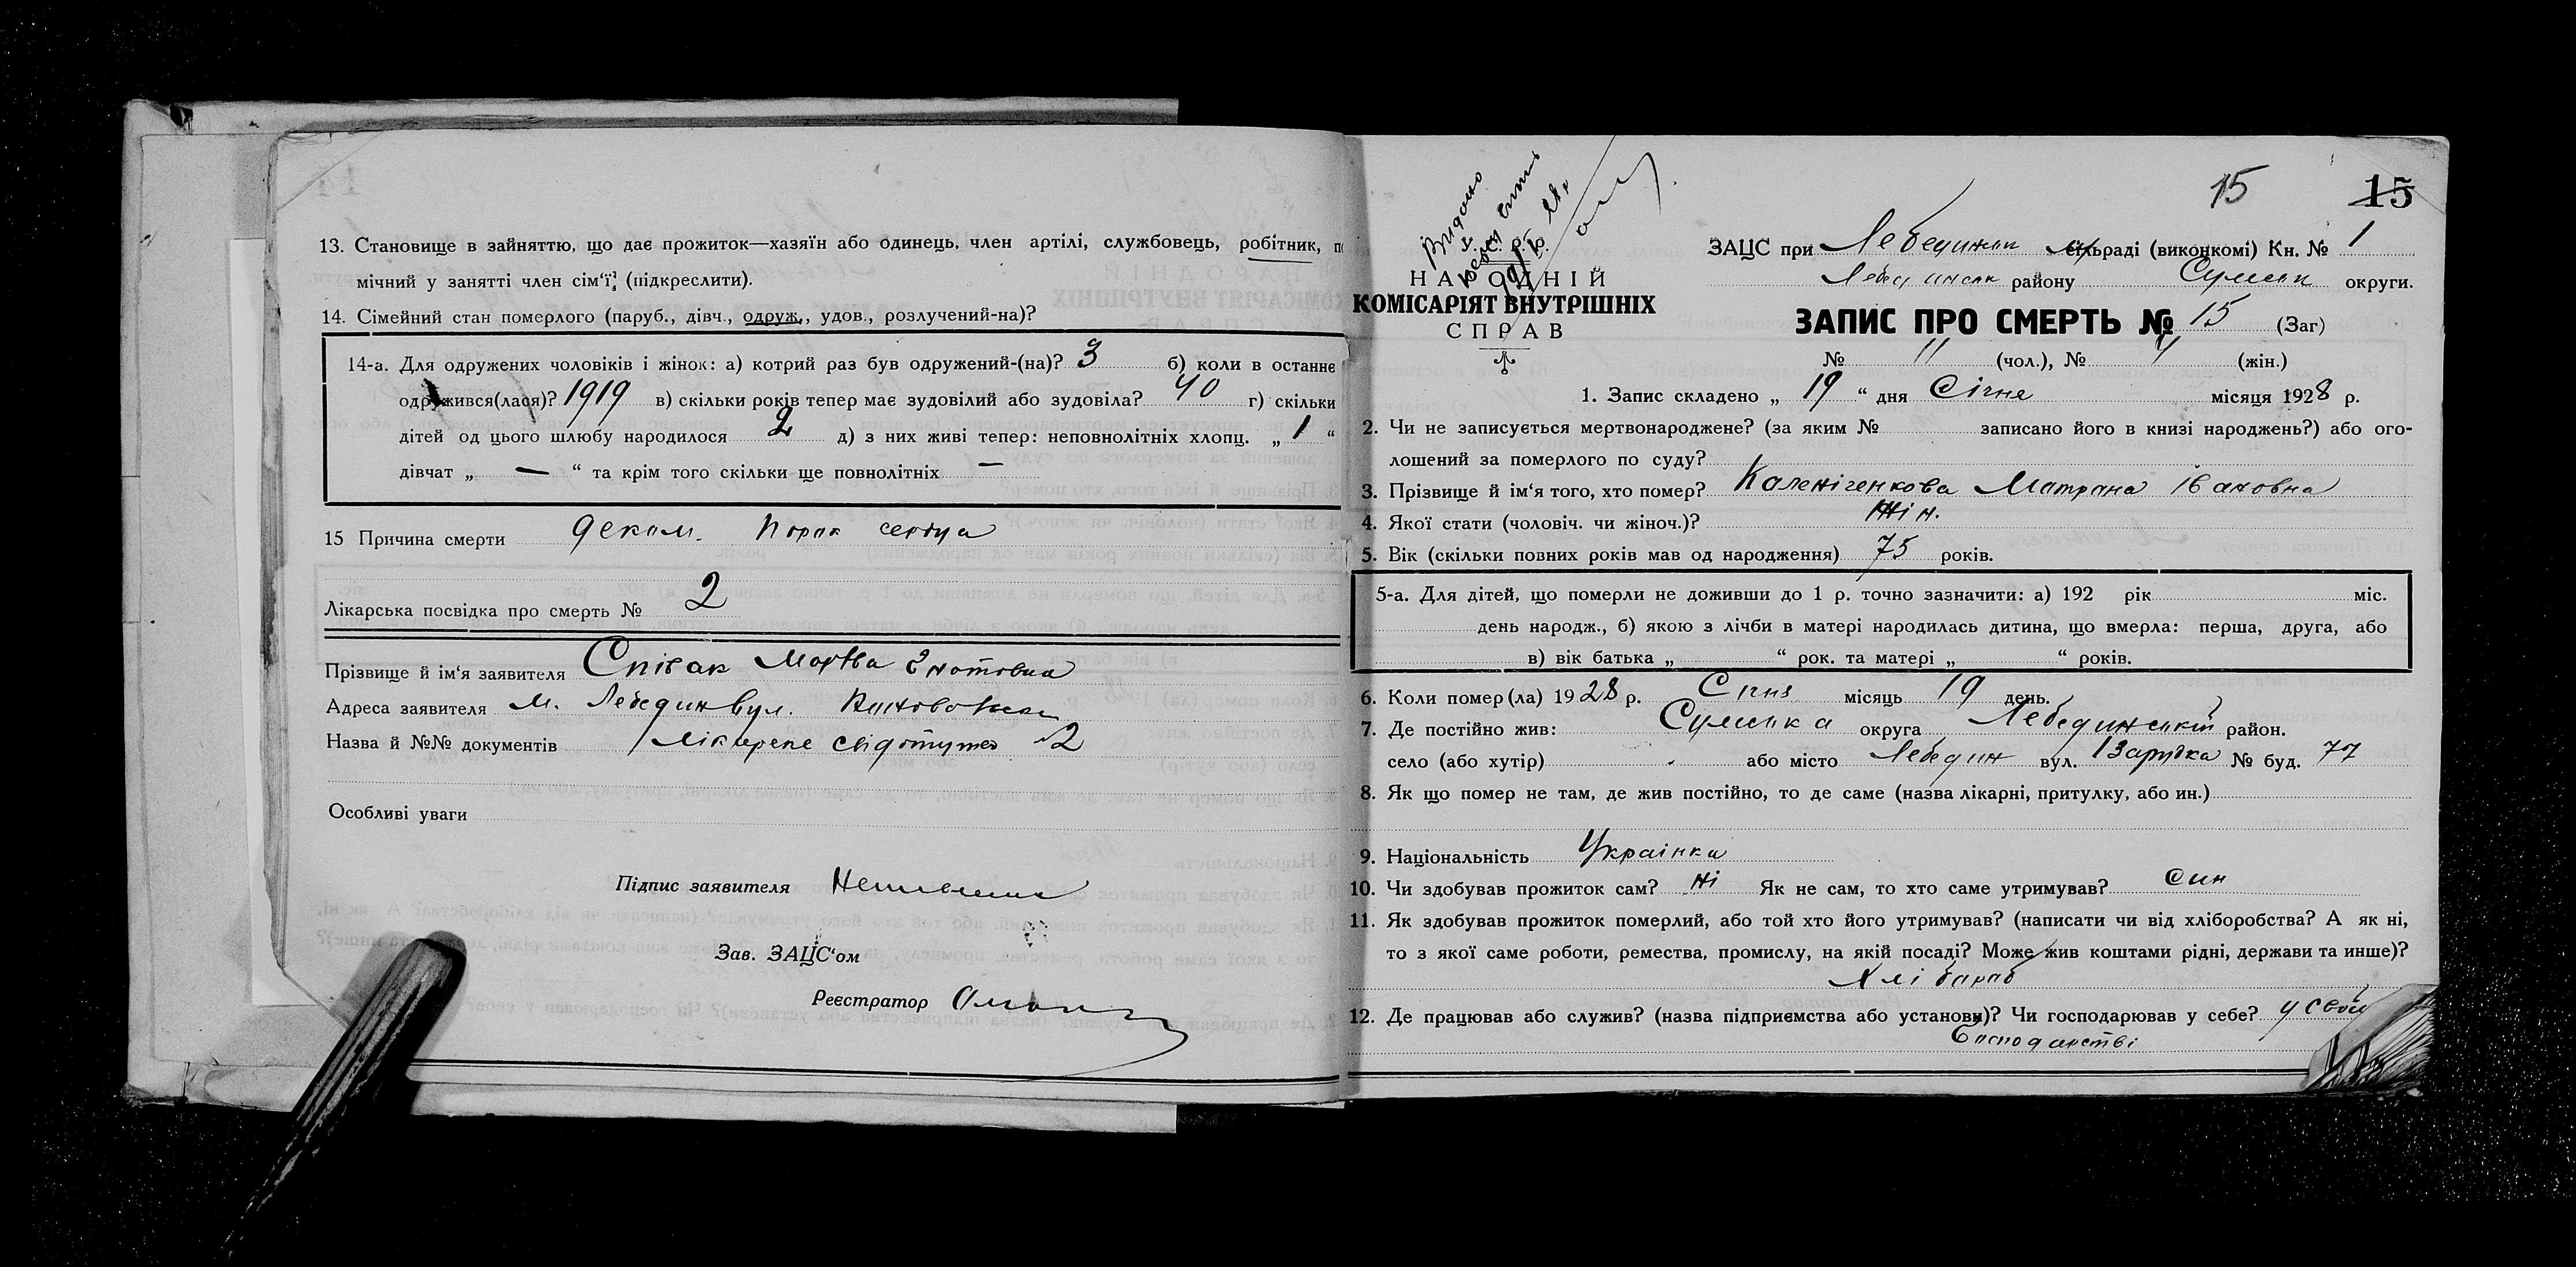 13. Становище в зайняттю, що дає прожиток—хазяїн або одинець, член артілі, службовець, робітник, п
мічний у занятті член сім'ї; (підкреслити).
14. Сімейний стан померлого (паруб., дівч., одруж., удов., розлучений-на)?
14-а. Для одружених чоловіків і жінок: а) котрий раз був одружений-(на)? 3 б) коли в останнє
одружився(лася)? 1919 в) скільки років тепер має зудовілий або зудовіла? 40 г) скільки
дітей од цього шлюбу народилося 2 д) з них живі тепер: неповнолітніх хлопц. „ 1 “
дівчат „ — “ та крім того скільки ще повнолітніх —
15 Причина смерти деком. порок сердца
Лікарська посвідка про смерть № 2
Прізвище й ім'я заявителя Співак Марва
Адреса заявителя м. Лебедин вул.
Назва й №№ документів Лікарське 2
Особливі уваги
Підпис заявителя
Зав. ЗАЦС'ом
Реєстратор
15 15
Видано
ЗАЦС при Лебединськ сільраді (виконкомі) Кн. № 1
Лебединськ району Сумськ округи.
У. С. Р. Р.
НАРОДНІЙ
КОМІСАРІЯТ ВНУТРІШНІХ
СПРАВ
ЗАПИС ПРО СМЕРТЬ № 15 (Заг)
№ 11 (чол.), № 4 (жін.)
1. Запис складено „ 19 “ дня Січня місяця 1928 р.
2. Чи не записується мертвонароджене? (за яким № записано його в книзі народжень?) або ого-
лошений за померлого по суду?
3. Прізвище й ім'я того, хто помер? Каленіченкова Матрана Івановна
4. Якої стати (чоловіч. чи жіноч.)? Жін.
5. Вік (скільки повних років мав од народження) 75 років.
5-а. Для дітей, що померли не доживши до 1 р. точно зазначити: а) 192 рік міс.
день народж., б) якою з лічби в матері народилась дитина, що вмерла: перша, друга, або
в) вік батька „ “ рок. та матері „ “ років.
6. Коли помер(ла) 1928 р. Січня місяць 19 день.
7. Де постійно жив: Сумська округа Лебединській район.
село (або хутір) або місто Лебедин вул. № буд. 77
8. Як що помер не там, де жив постійно, то де саме (назва лікарні, притулку, або ин.)
9. Національність Українка
10. Чи здобував прожиток сам? Ні Як не сам, то хто саме утримував? син
11. Як здобував прожиток померлий, або той хто його утримував? (написати чи від хліборобства? А як ні,
то з якої саме роботи, ремества, промислу, на якій посаді? Може жив коштами рідні, держави та инше)?
Хлібароб
12. Де працював або служив? (назва підприємства або установи)? Чи господарював у себе? у своїм
Господарстві